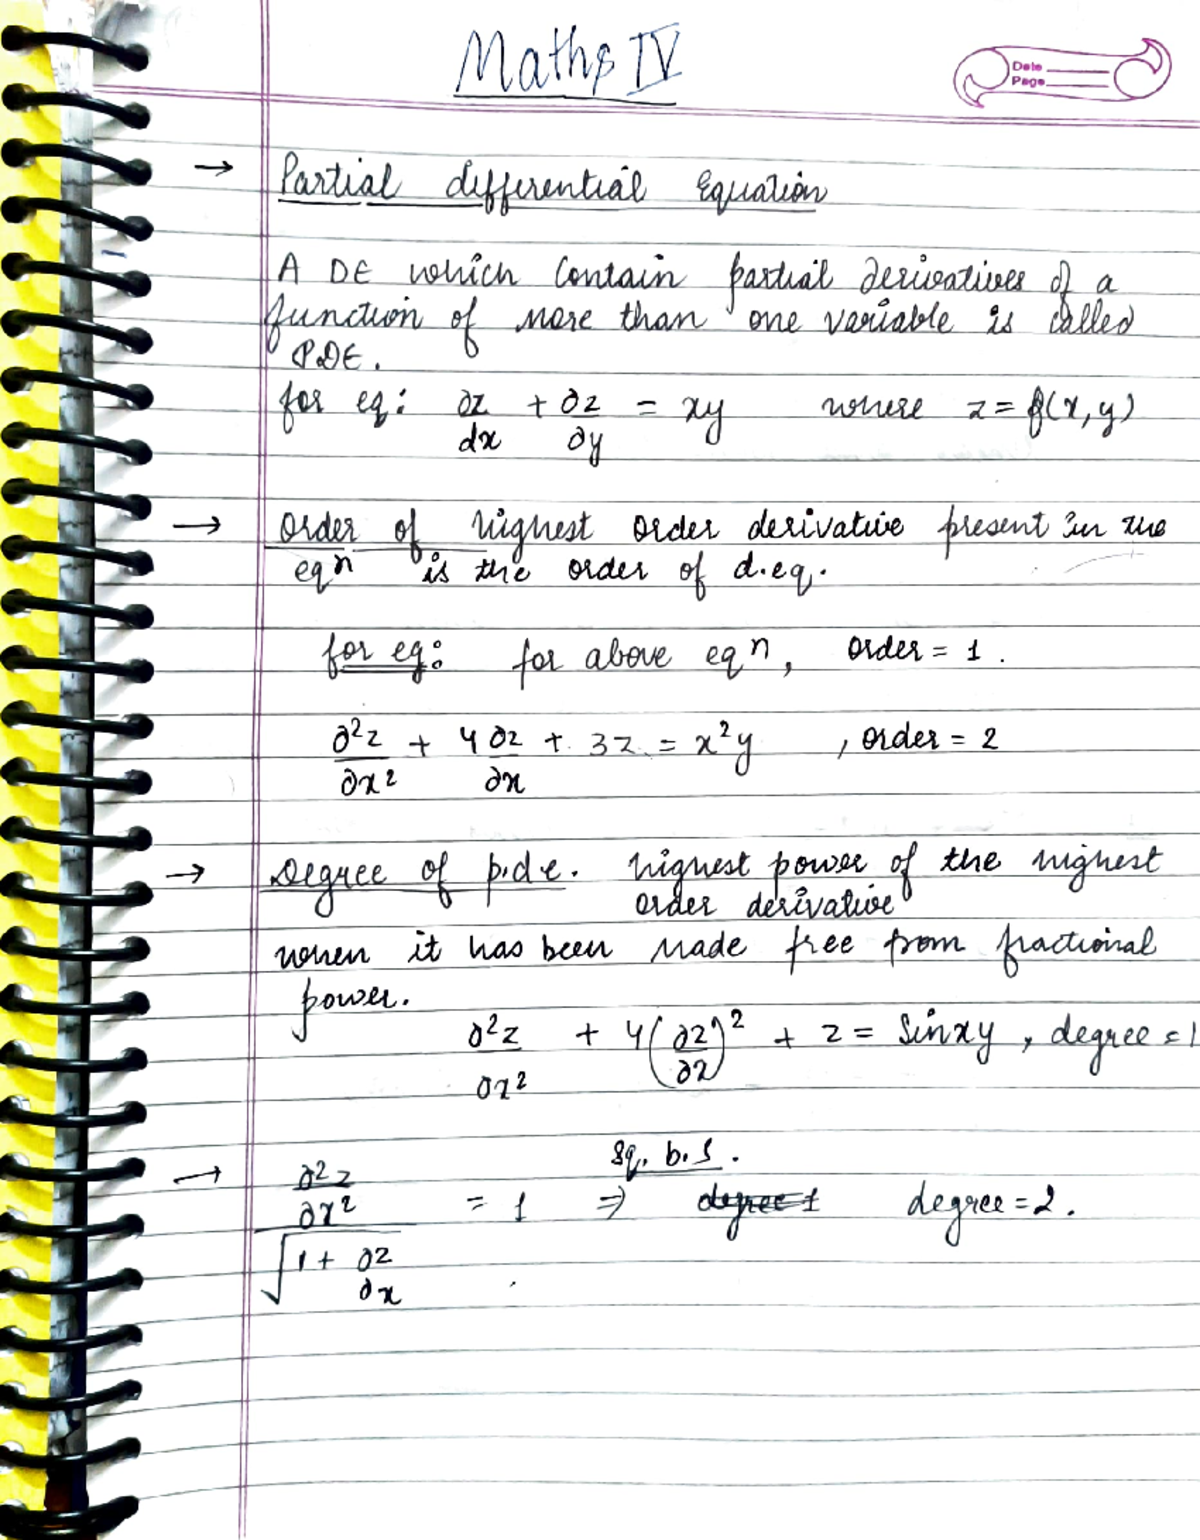 Maths IV
Date
Page
→ Partial differential Equation
A DE which contain partial derivatives of a
function of more than one variable is called
PDE.
for eq: ∂z/dx + ∂z/∂y = xy where z = f(x, y)
→ Order of highest order derivative present in the
eqn is the order of d.eq.
for eg: for above eqn, order = 1.
∂²z/∂x² + 4 ∂z/∂x + 3z = x²y , order = 2
→ Degree of p.d.e. highest power of the highest
order derivative
when it has been made free from fractional
power.
∂²z/∂x² + 4(∂z/∂x)² + z = Sinxy , degree = 1
Sq. b.s.
→ (∂²z/∂x²)/√(1 + ∂z/∂x) = 1 ⇒ degree 1 degree = 2.